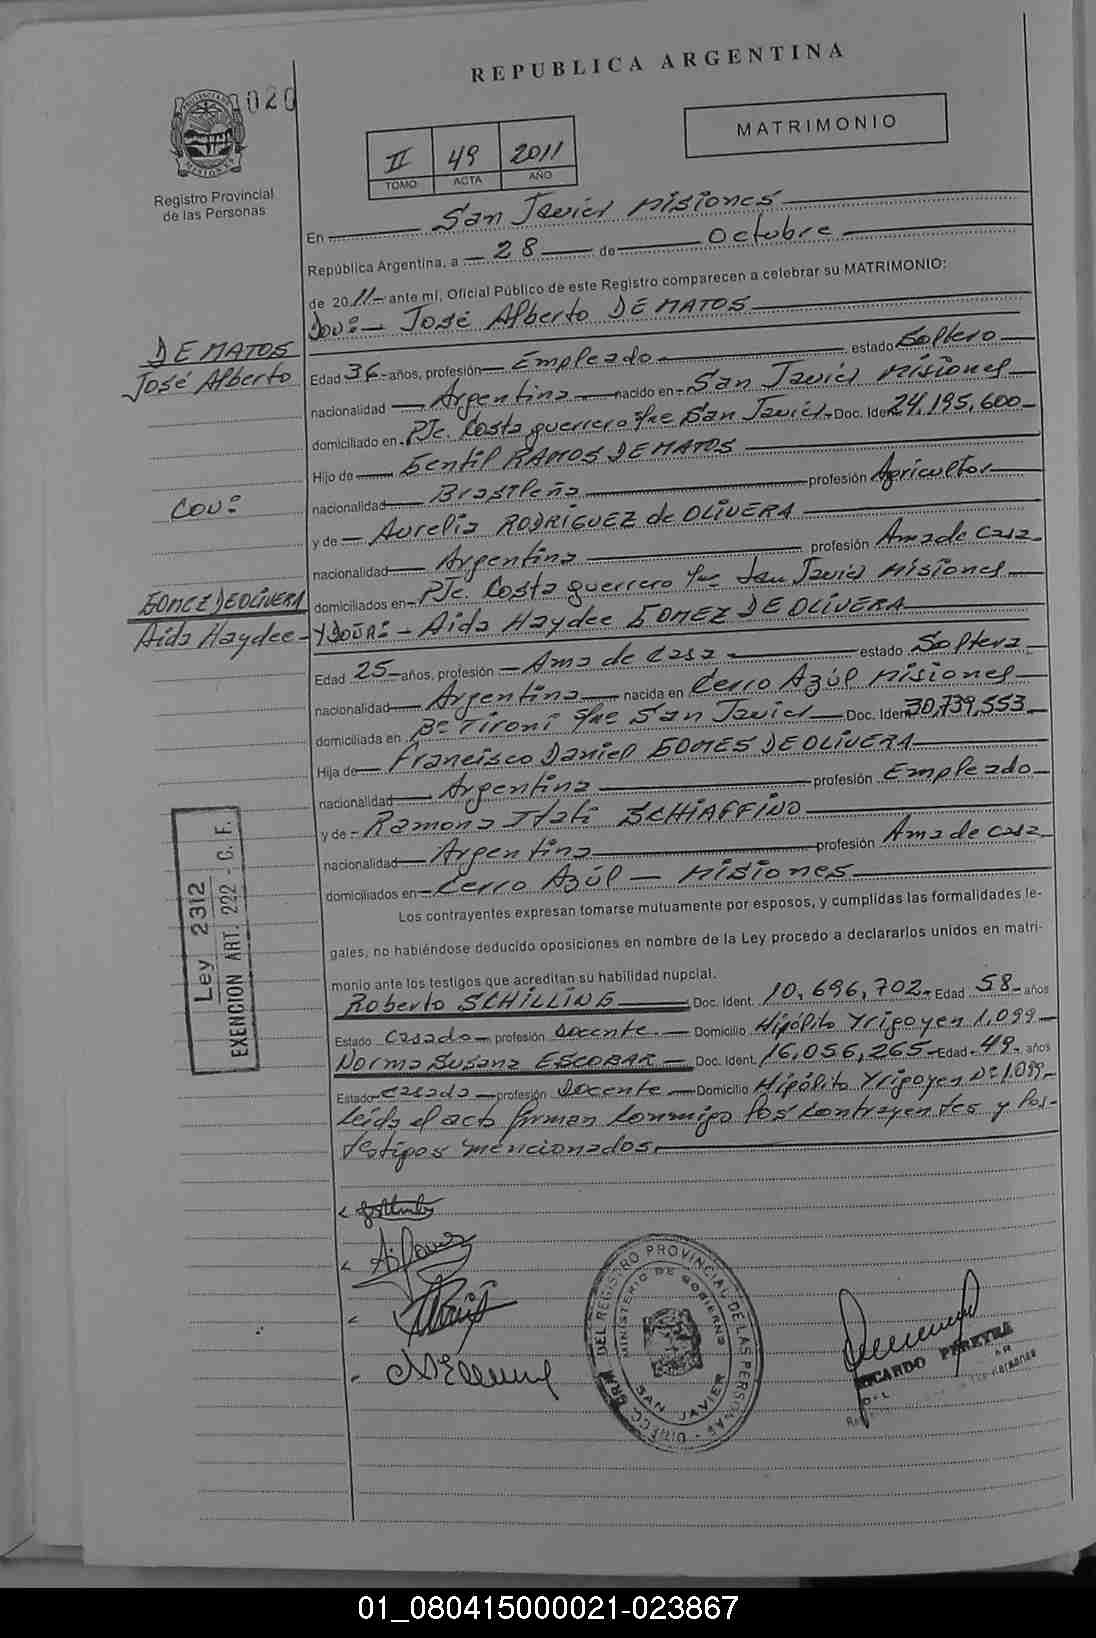 REPUBLICA ARGENTINA
020
MATRIMONIO
II 49 2011
TOMO ACTA AÑO
Registro Provincial
de las Personas
En San Javier Misiones
República Argentina, a 28 de Octubre
de 2011 ante mí, Oficial Público de este Registro comparecen a celebrar su MATRIMONIO:
Don: José Alberto DE MATOS
DE MATOS
José Alberto
Edad 36 años, profesión Empleado estado Soltero
nacionalidad Argentina nacido en San Javier Misiones
domiciliado en Pje. Costa guerrero San Javier Doc. Iden 24,195,600
Hijo de Gentil RAMOS DE MATOS
nacionalidad Brasileña profesión Agricultor
Con:
y de Aurelia RODRIGUEZ de OLIVERA
nacionalidad Argentina profesión Ama de Casa
domiciliados en Pje. Costa guerrero San Javier Misiones
GOMEZ DE OLIVERA
Aida Haydee
Y DOÑA: Aida Haydee GOMEZ DE OLIVERA
Edad 25 años, profesión Ama de Casa estado Soltera
nacionalidad Argentina nacida en Cerro Azúl Misiones
domiciliada en Bº Tironi San Javier Doc. Iden 30,739,553
Hija de Francisco Daniel GOMES DE OLIVERA
nacionalidad Argentina profesión Empleado
y de Ramona Itati SCHIAFFINO
nacionalidad Argentina profesión Ama de casa
domiciliados en Cerro Azúl - Misiones
Ley 2312
EXENCION ART. 222 - C. F.
Los contrayentes expresan tomarse mutuamente por esposos, y cumplidas las formalidades le-
gales, no habiéndose deducido oposiciones en nombre de la Ley procedo a declararlos unidos en matri-
monio ante los testigos que acreditan su habilidad nupcial.
Roberto SCHILLING Doc. Ident. 10,696,702 Edad 58 años
Estado Casado profesión Docente Domicilio Hipólito Yrigoyen 1,099
Norma Susana ESCOBAR Doc. Ident. 16,056,265 Edad 49 años
Estado Casada profesión Docente Domicilio Hipólito Yrigoyen Nº 1.099
Leida el acta firman conmigo los contrayentes y los
testigos mencionados.
DIRECC. GRAL DEL REGISTRO PROVINCIAL DE LAS PERSONAS
MINISTERIO DE GOBIERNO
SAN JAVIER
RICARDO PEREYRA
01_080415000021-023867